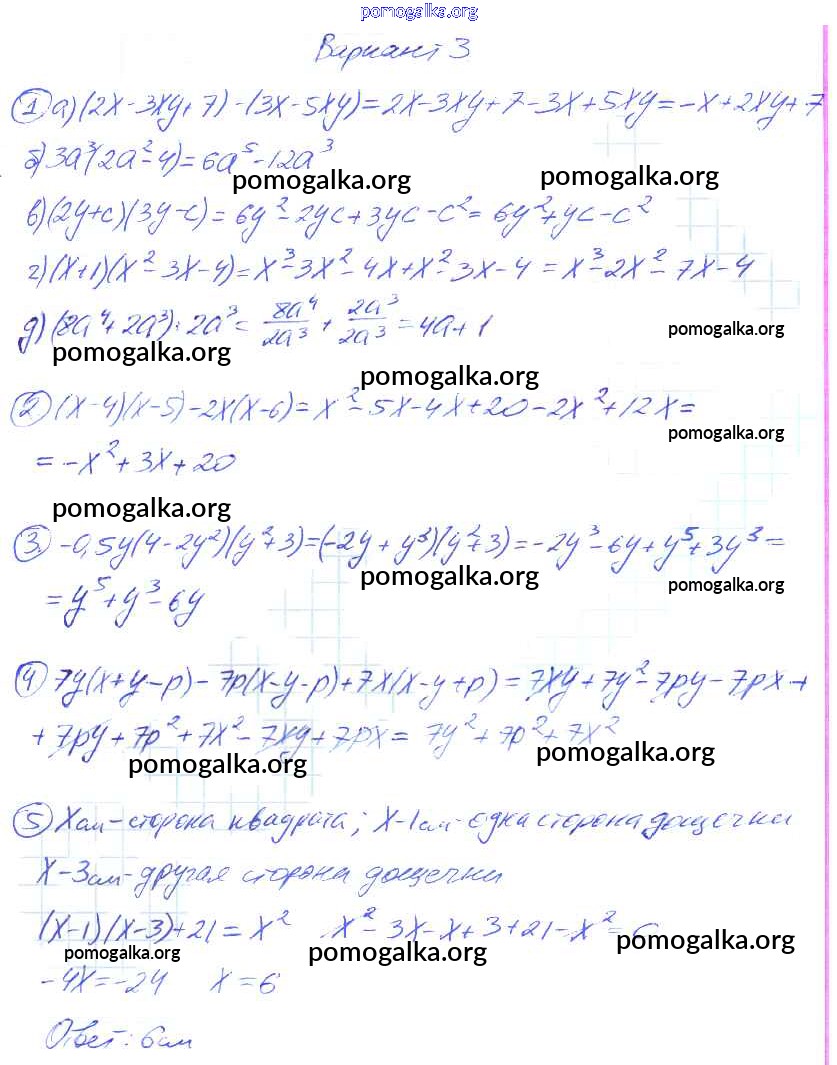 pomogalka.org
Вариант 3
① а) (2x - 3xy + 7) - (3x - 5xy) = 2x - 3xy + 7 - 3x + 5xy = -x + 2xy + 7
б) 3a³(2a² - 4) = 6a⁵ - 12a³
pomogalka.org pomogalka.org
в) (2y + c)(3y - c) = 6y² - 2yc + 3yc - c² = 6y² + yc - c²
г) (x + 1)(x² - 3x - 4) = x³ - 3x² - 4x + x² - 3x - 4 = x³ - 2x² - 7x - 4
д) (8a⁴ + 2a³) : 2a³ = 8a⁴/2a³ + 2a³/2a³ = 4a + 1
pomogalka.org
pomogalka.org
pomogalka.org
② (x - 4)(x - 5) - 2x(x - 6) = x² - 5x - 4x + 20 - 2x² + 12x =
pomogalka.org
= -x² + 3x + 20
pomogalka.org
③ -0,5y(4 - 2y²)(y² + 3) = (-2y + y³)(y² + 3) = -2y³ - 6y + y⁵ + 3y³ =
pomogalka.org pomogalka.org
= y⁵ + y³ - 6y
④ 7y(x + y - p) - 7p(x - y - p) + 7x(x - y + p) = 7xy + 7y² - 7py - 7px +
+ 7py + 7p² + 7x² - 7xy + 7px = 7y² + 7p² + 7x²
pomogalka.org pomogalka.org
⑤ X см - сторона квадрата; X - 1 см - одна сторона дощечки
X - 3 см - другая сторона дощечки
(x - 1)(x - 3) + 21 = x² x² - 3x - x + 3 + 21 - x² =
pomogalka.org pomogalka.org pomogalka.org
-4x = -24 x = 6
Ответ: 6 см